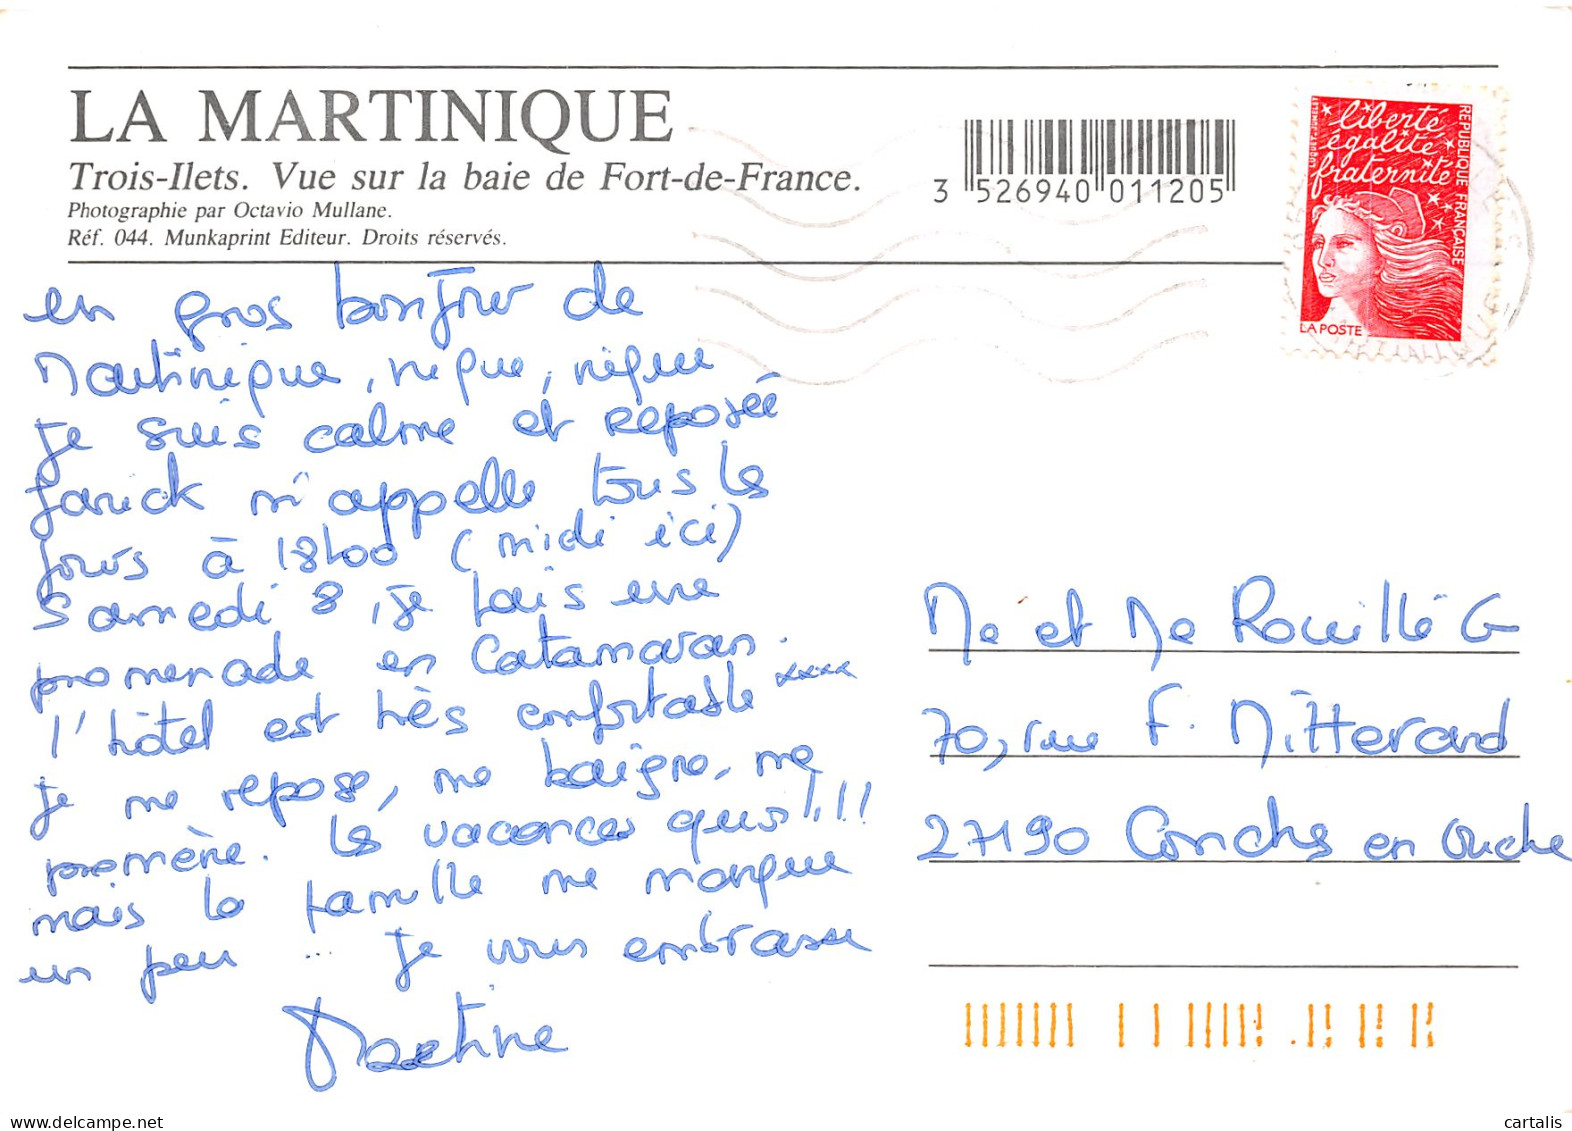 LA MARTINIQUE
Trois-Ilets. Vue sur la baie de Fort-de-France.
Photographie par Octavio Mullane.
Réf. 044. Munkaprint Editeur. Droits réservés.
3 526940 011205
liberté
égalité
fraternité
REPUBLIQUE FRANÇAISE
LA POSTE
un gros bonjour de
Martinique, nique, nique
je suis calme et reposée
m'appelle tous les
jours à 18h00 (midi ici)
Samedi 8, je fais une
promenade en Catamaran.
l'hôtel est très confortable ****
je me repose, me baigne, me
promène. les vacances quoi!!!
mais la famille me manque
un peu ... je vous embrasse
Martine
Me et Me Rouillé G
70, rue F. Mitterand
27190 Conches en Ouche
cartalis
delcampe.net